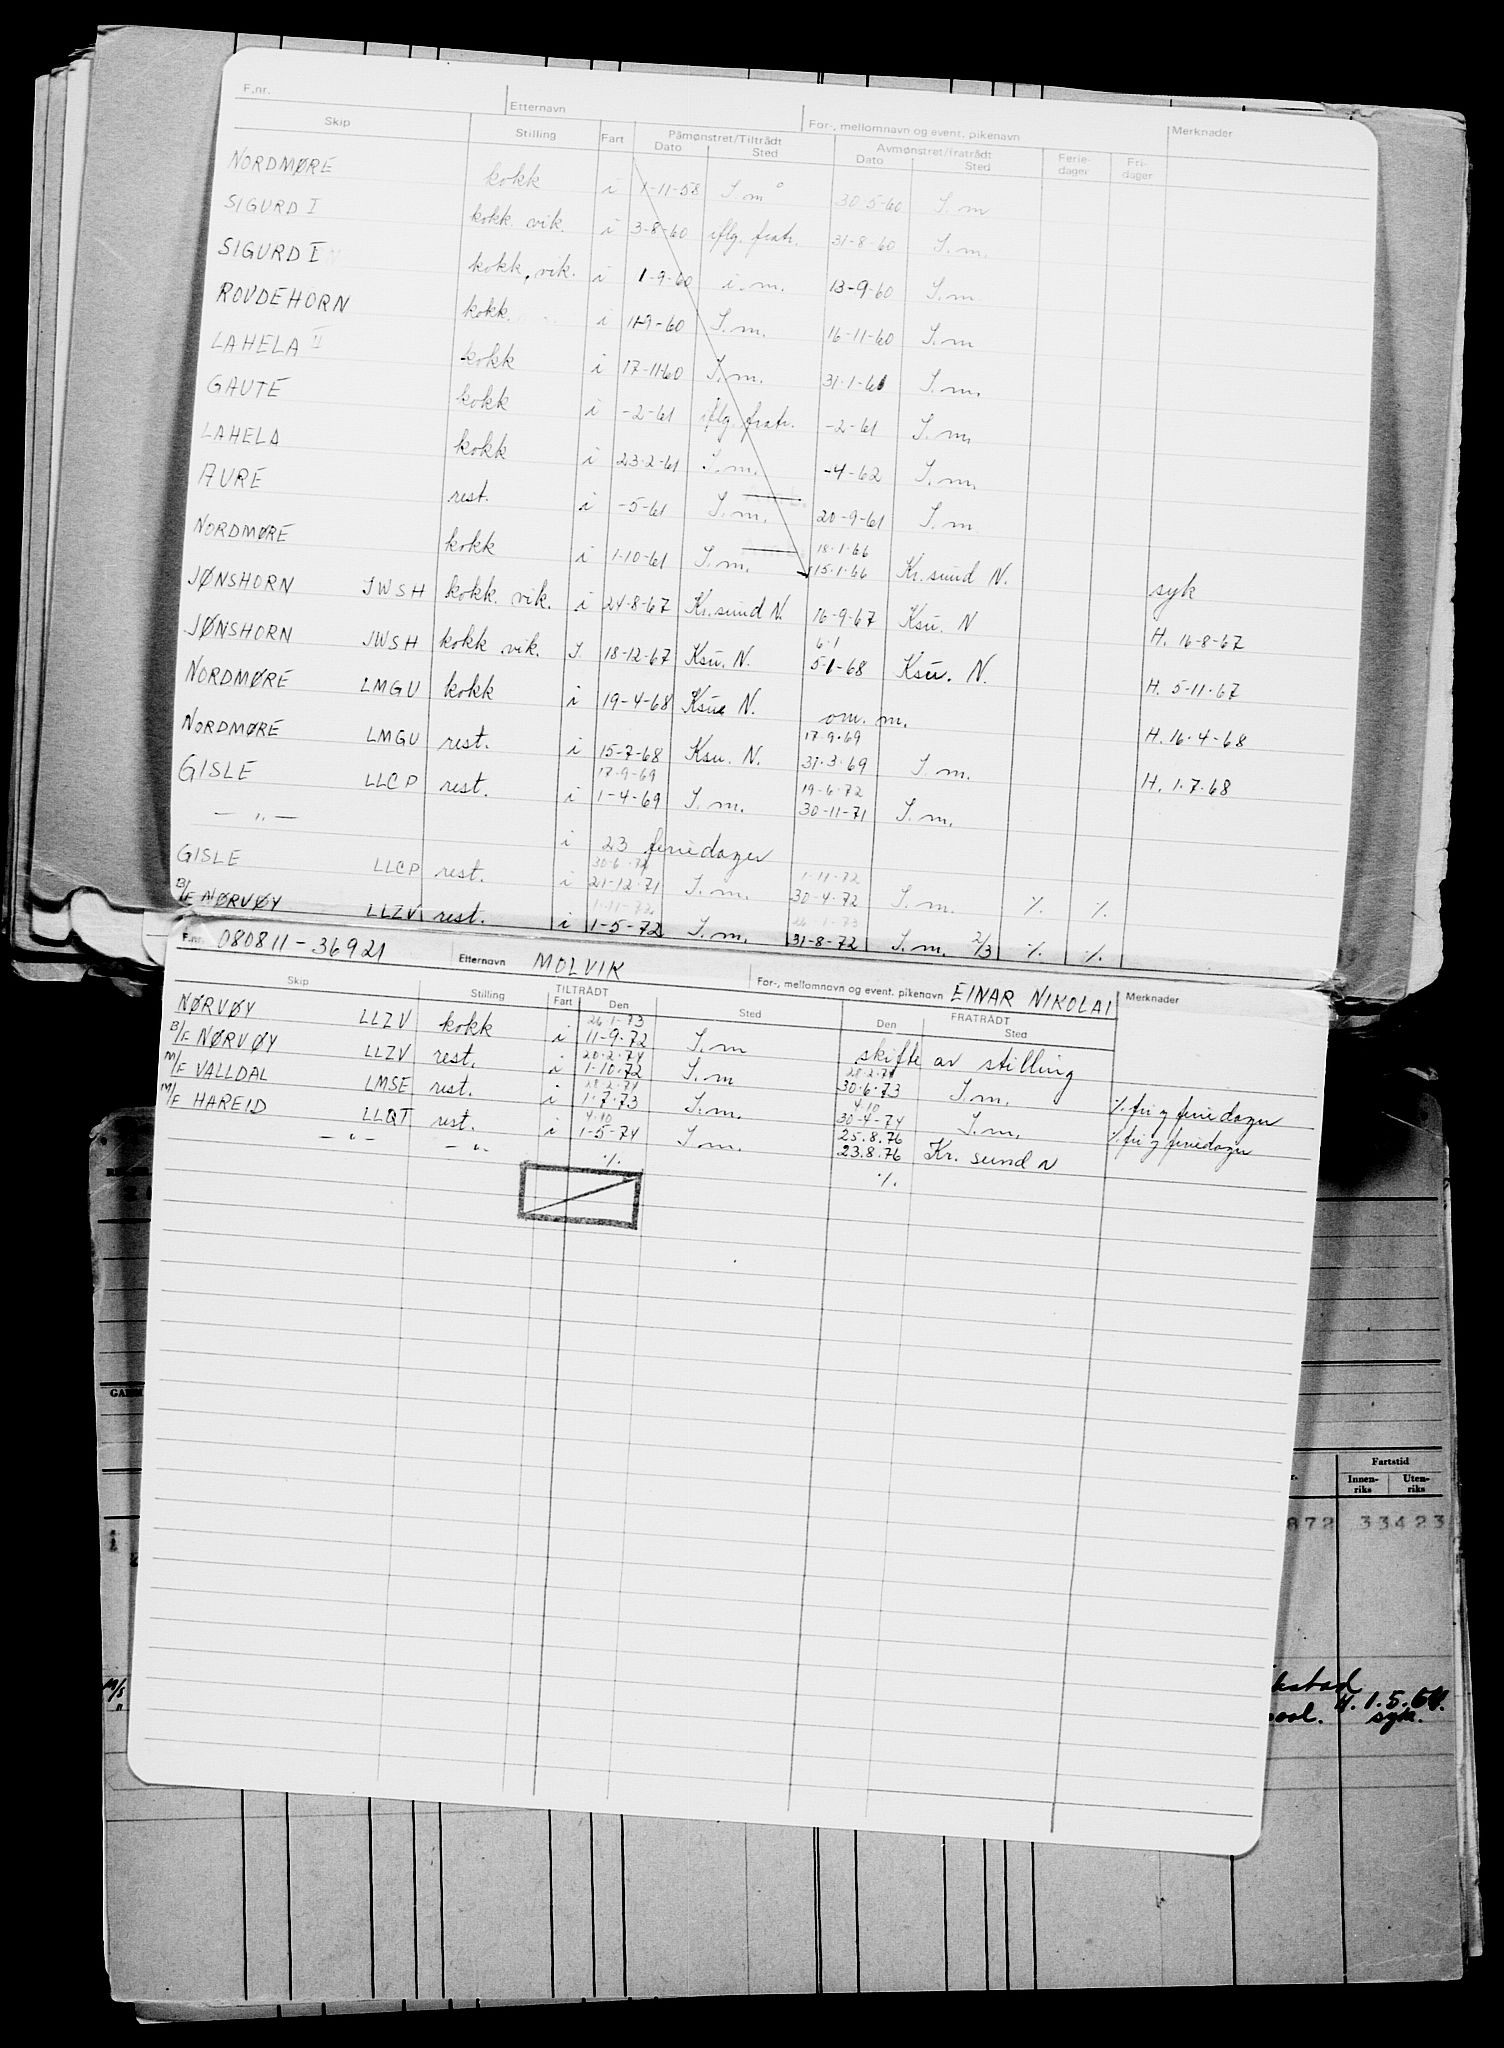 F.nr. Etternavn For-, mellomnavn og event. pikenavn
Skip Stilling Fart Påmønstret/Tiltrådt Dato Sted Avmønstret/fratrådt Dato Sted Ferie-dager Fri-dager Merknader
NORDMØRE kokk i 1-11-58 S.m 30-5-60 S.m
SIGURD I kokk vik. i 3-8-60 iflg. fratr. 31-8-60 S.m.
SIGURD I kokk, vik. i 1-9-60 i.m. 13-9-60 S.m
ROVDEHORN kokk. i 11-9-60 S.m. 16-11-60 S.m
LAHELA II kokk i 17-11-60 S.m. 31-1-61 S.m.
GAUTE kokk i -2-61 iflg. fratr. -2-61 S.m.
LAHELA kokk i 23-2-61 S.m. -4-62 S.m.
AURE rest. i -5-61 S.m. 20-9-61 S.m
NORDMØRE kokk i 1-10-61 S.m. 18.1.66 15.1.66 Kr.sund N. syk
JØNSHORN JWSH kokk. vik. i 24-8-67 Kr.sund N. 16-9-67 Ksu. N H. 16-8-67
JØNSHORN JWSH kokk vik. S. 18-12-67 Ksu. N. 6.1 5-1-68 Ksu. N. H. 5-11-67
NORDMØRE LMGU kokk i 19-4-68 Ksu N. om. m. H. 16-4-68
NORDMØRE LMGU rest. i 15-7-68 Ksu. N. 17.9.69 31.3.69 S.m. H. 1.7.68
GISLE LLCP rest. i 17-9-69 1-4-69 S.m. 19-6-72 30-11-71 S.m.
— " — i 23 feriedager
GISLE LLCP rest. i 30-6-72 21-12-71 S.m. 1-11-72 30-4-72 S.m. % %
B/F NØRVØY LLZV rest. i 1-11-72 1-5-72 S.m. 26-1-73 31-8-72 S.m. 2/3 % %
F.nr. 080811-36921 Etternavn MOLVIK For-, mellomnavn og event. pikenavn EINAR NIKOLAI
Skip Stilling TILTRÅDT Fart Den Sted FRATRÅDT Den Sted Merknader
NØRVØY LLZV kokk i 26-1-73 11-9-72 S.m skifte av stilling
B/F NØRVØY LLZV rest. i 20.2.74 1-10-72 S.m 28.2.74 30.6.73 S.m. % fri og feriedager
M/F VALLDAL LMSE rest. i 28.2.74 1.7.73 S.m. 4.10 30-4-74 S.m. % fri og feriedager
M/F HAREID LLQT rest. i 4.10 1-5-74 S.m. 25.8.76 23.8.76 Kr. sund N
— " — — " %. %.
Fartstid
Innen-riks Uten-riks
872 33423
M/S
H. 1.5.64.
syk.